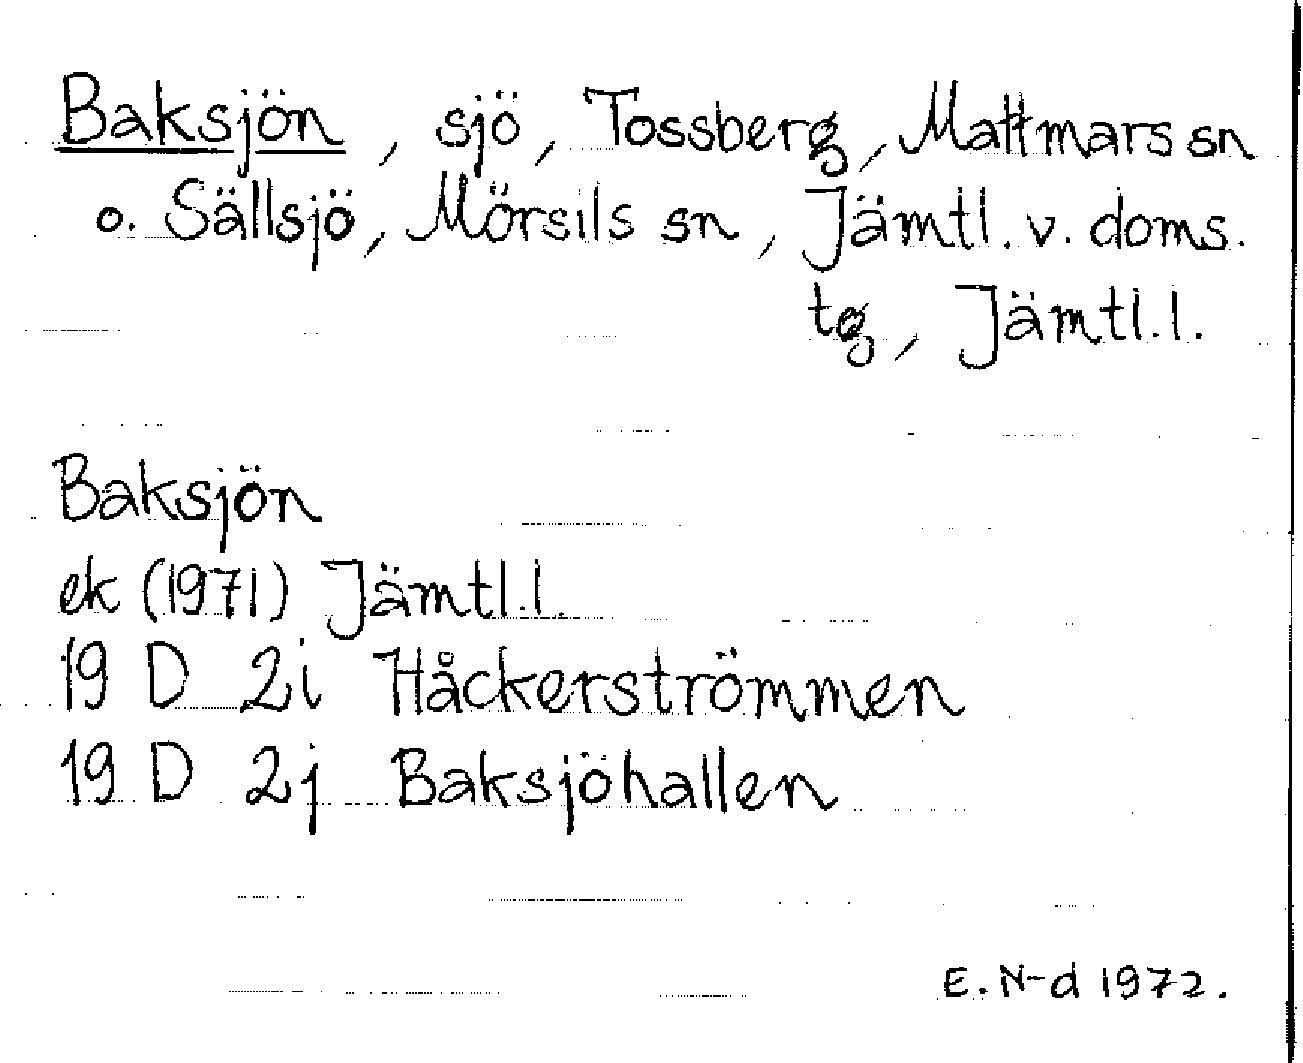 Baksjön, sjö, Tossberg, Mattmars sn
o. Sällsjö, Mörsils sn, Jämtl. v. doms.
tg, Jämtl. l.
Baksjön
ek (1971) Jämtl. l.
19 D 2i Håckerströmmen
19 D 2j Baksjöhallen
E. N-d 1972.